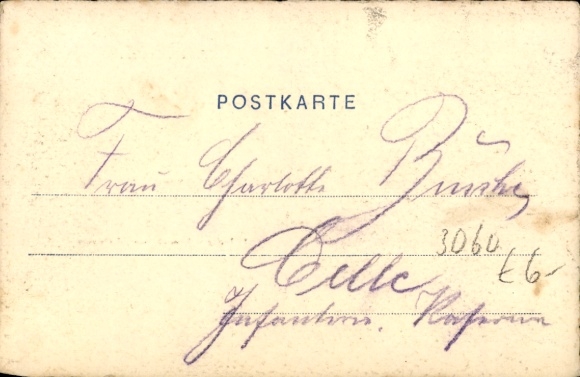 POSTKARTE
Frau Charlotte
Celle
3060
€6-
Infanterie. Kaserne